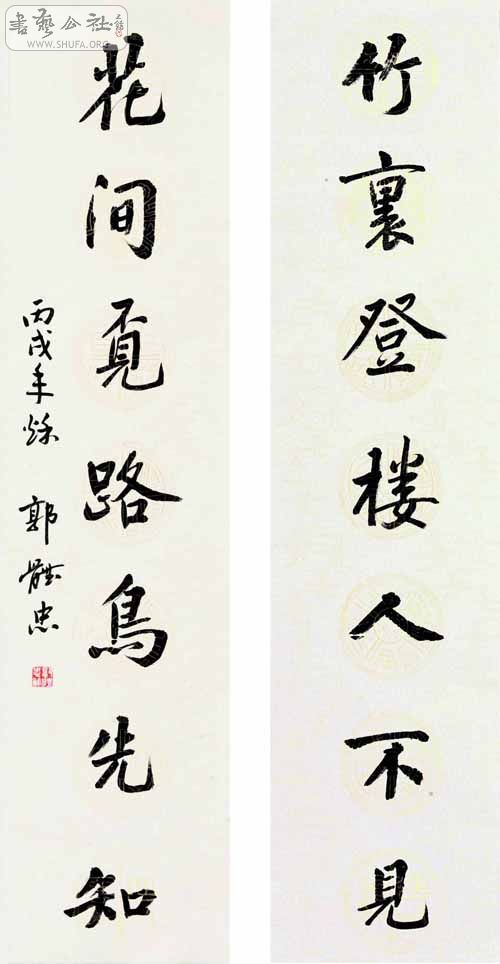 竹裏登楼人不見
花间覔路鳥先知
丙戌年秌 郭體忠
書藝公社
WWW.SHUFA.ORG